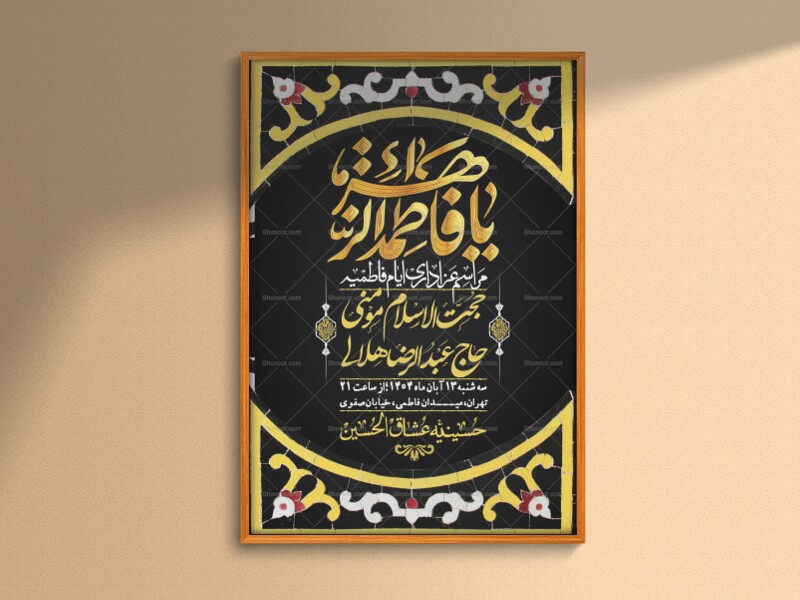 یا فاطمة الزهراء
مراسم عزاداری ایام فاطمیه
حجت الاسلام مومنی
حاج عبدالرضا هلالی
سه شنبه ۱۳ آبان ماه ۱۴۰۴ از ساعت ۲۱
تهران، میدان فاطمی، خیابان صفوی
حسینیه عشاق الحسین
Ghonoot.com